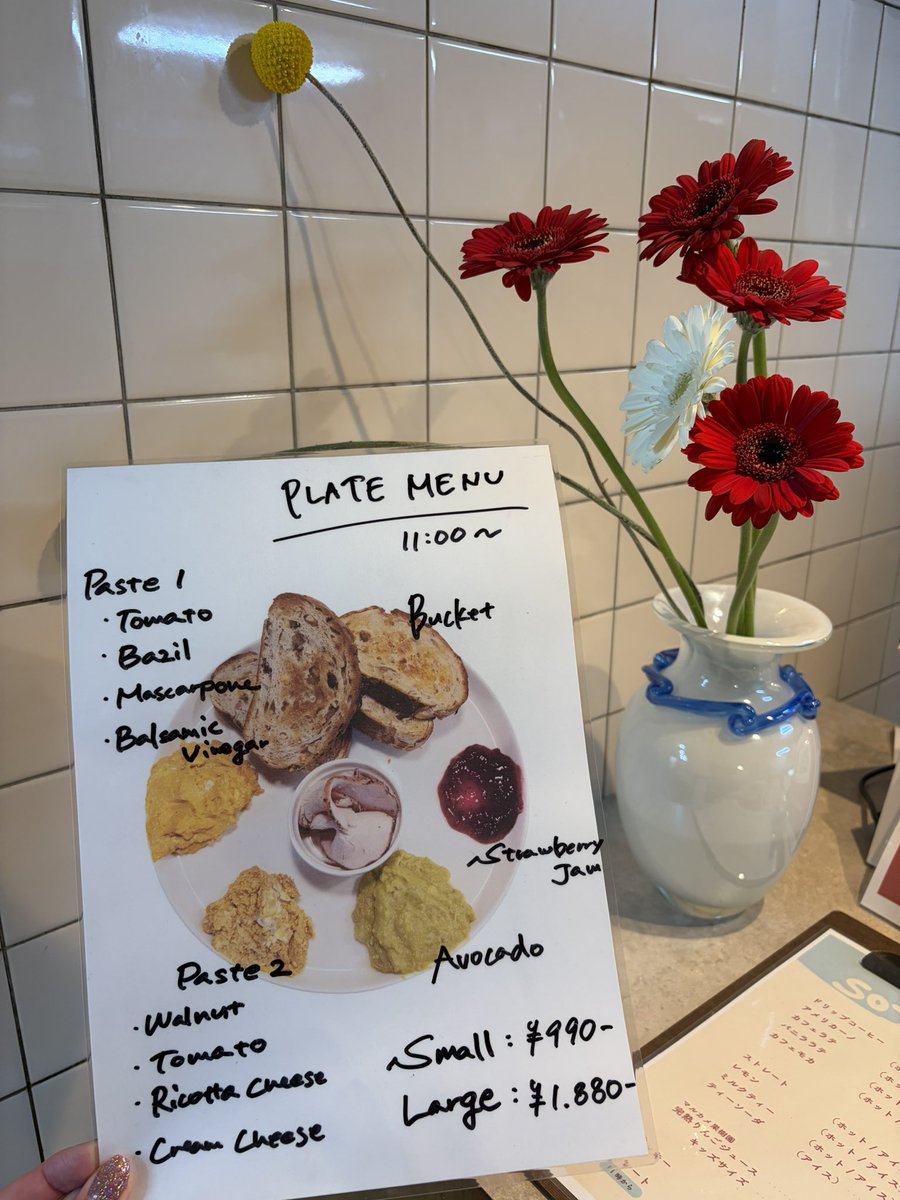 PLATE MENU
11:00~
Paste 1
・Tomato
・Bazil
・Mascarpone
・Balsamic
Vinegar
Bucket
Strawberry
Jam
Avocado
Paste 2
・Walnut
・Tomato
・Ricotta Cheese
・Cream Cheese
Small : ¥990-
Large : ¥1.880-
ドリップコーヒー
アメリカーノ
カフェラテ
バニララテ
カフェモカ
ストレート
レモン
ミルクティー
ティーソーダ
完熟りんごジュース
キッズサイズ
(ホット/アイス)